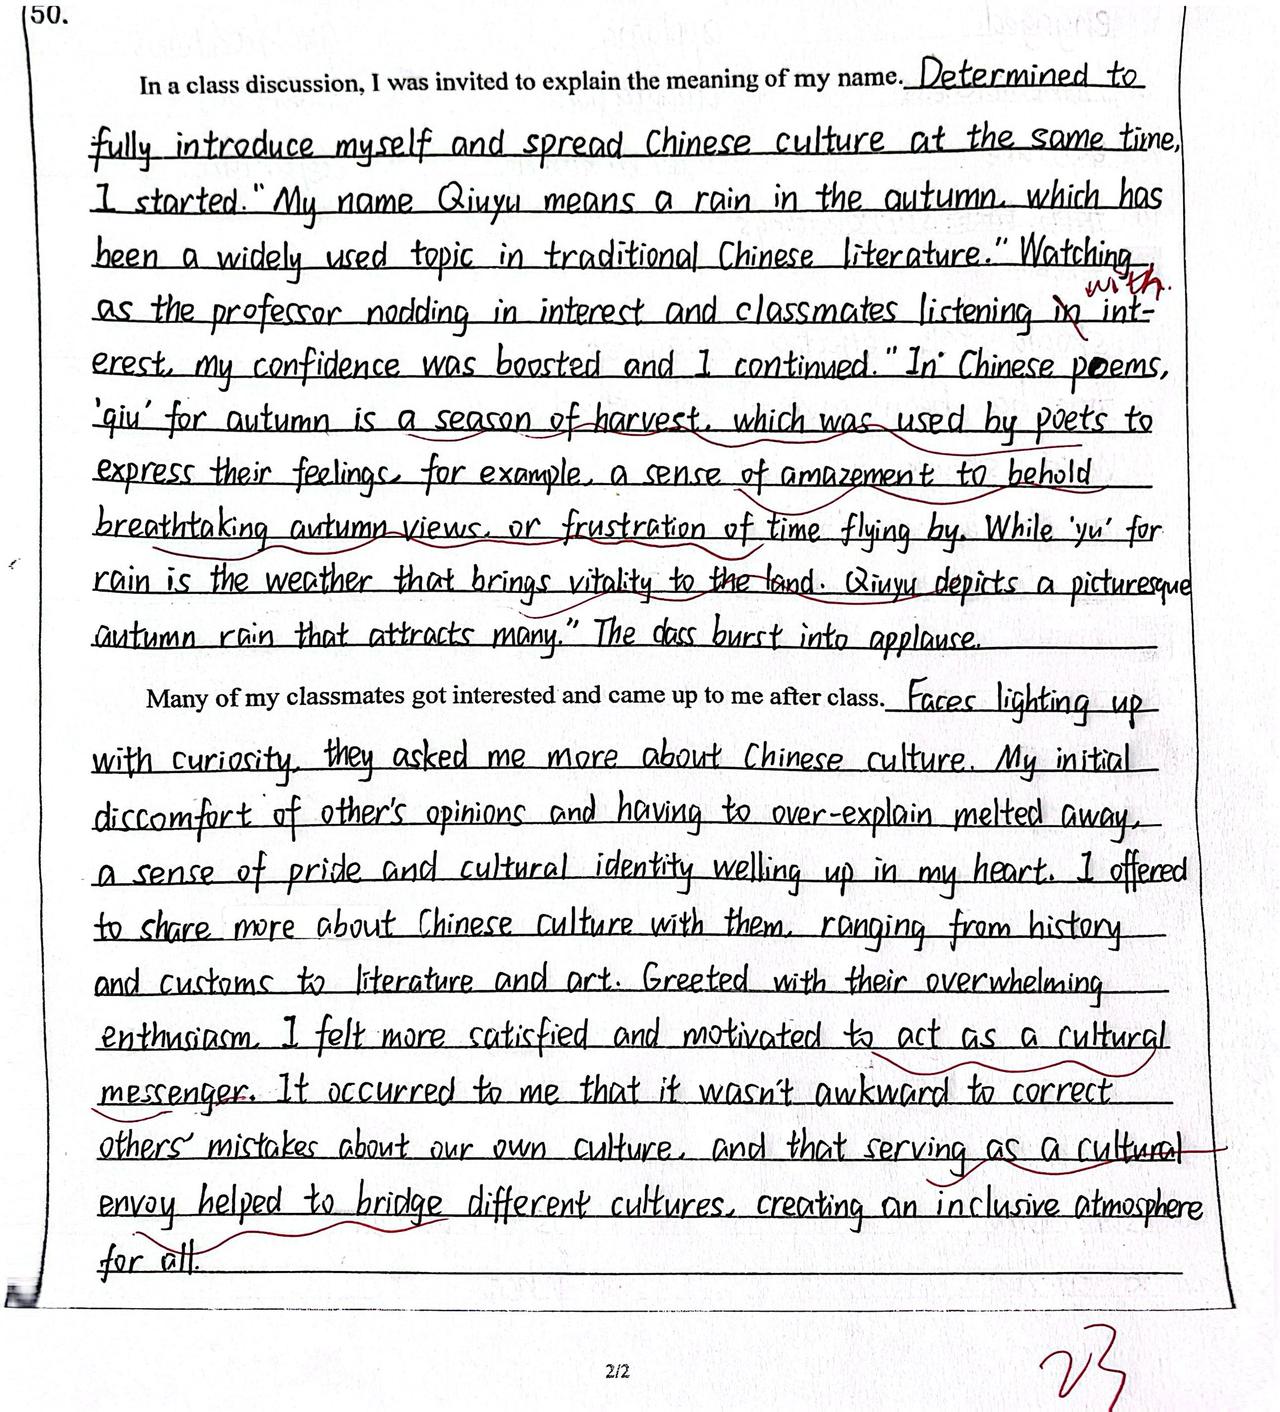 150.
In a class discussion, I was invited to explain the meaning of my name. Determined to
fully introduce myself and spread Chinese culture at the same time,
I started. "My name Qiuyu means a rain in the autumn, which has
been a widely used topic in traditional Chinese literature." Watching
with.
as the professor nodding in interest and classmates listening in int-
erest, my confidence was boosted and I continued. "In Chinese poems,
'qiu' for autumn is a season of harvest, which was used by poets to
express their feelings, for example, a sense of amazement to behold
breathtaking autumn views, or frustration of time flying by. While 'yu' for
rain is the weather that brings vitality to the land. Qiuyu depicts a picturesque
autumn rain that attracts many." The class burst into applause.
Many of my classmates got interested and came up to me after class. Faces lighting up
with curiosity, they asked me more about Chinese culture. My initial
discomfort of other's opinions and having to over-explain melted away,
a sense of pride and cultural identity welling up in my heart. I offered
to share more about Chinese culture with them, ranging from history
and customs to literature and art. Greeted with their overwhelming
enthusiasm, I felt more satisfied and motivated to act as a cultural
messenger. It occurred to me that it wasn't awkward to correct
others' mistakes about our own culture, and that serving as a cultural
envoy helped to bridge different cultures, creating an inclusive atmosphere
for all.
2/2
23